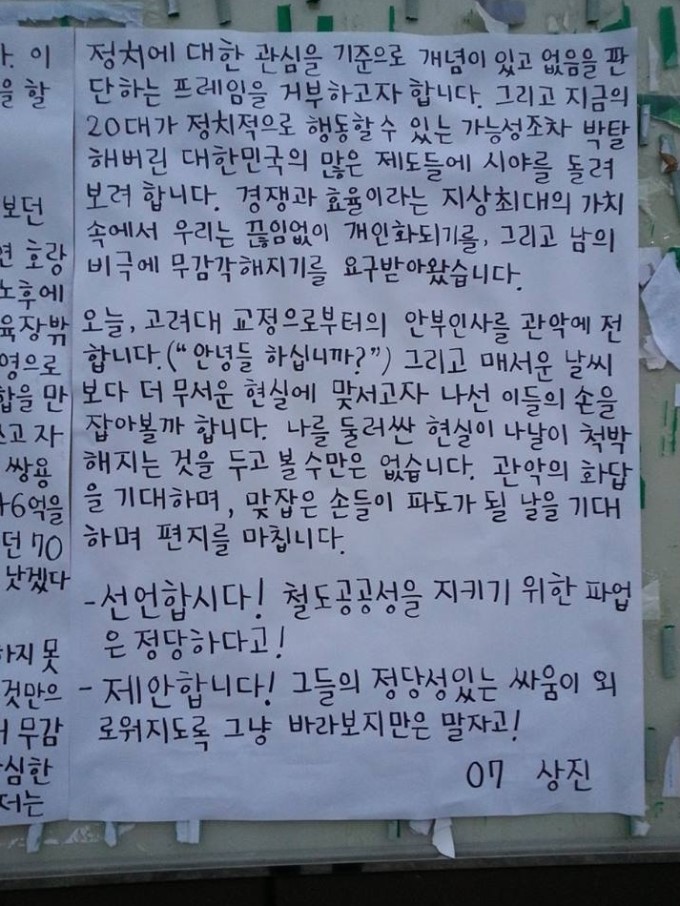 . 이
을 할
보던
견 호랑
노후에
육장밖
영으로
합을 만
고 자
쌍용
6억을
던 70
낫겠다
하지 못
것만은
무감
심한
더는
정치에 대한 관심을 기준으로 개념이 있고 없음을 판
단하는 프레임을 거부하고자 합니다. 그리고 지금의
20대가 정치적으로 행동할 수 있는 가능성조차 박탈
해버린 대한민국의 많은 제도들에 시야를 돌려
보려 합니다. 경쟁과 효율이라는 지상최대의 가치
속에서 우리는 끊임없이 개인화되기를, 그리고 남의
비극에 무감각해지기를 요구받아왔습니다.
오늘, 고려대 교정으로부터의 안부인사를 관악에 전
합니다.("안녕들 하십니까?") 그리고 매서운 날씨
보다 더 무서운 현실에 맞서고자 나선 이들의 손을
잡아볼까 합니다. 나를 둘러싼 현실이 나날이 척박
해지는 것을 두고 볼 수만은 없습니다. 관악의 화답
을 기대하며, 맞잡은 손들이 파도가 될 날을 기대
하며 편지를 마칩니다.
-선언합시다! 철도공공성을 지키기 위한 파업
은 정당하다고!
- 제안합니다! 그들의 정당성있는 싸움이 외
로워지도록 그냥 바라보지만은 말자고!
07 상진